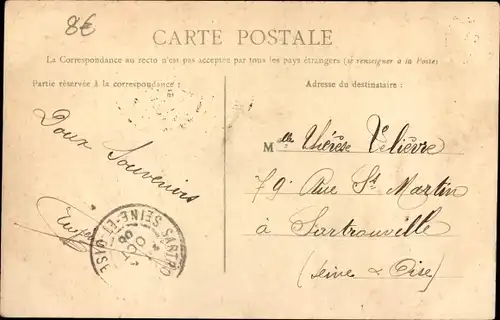 8€
CARTE POSTALE
La Correspondance au recto n'est pas acceptée par tous les pays étrangers (se renseigner à la Poste)
Partie réservée à la correspondance :
Adresse du destinataire :
Doux Souvenirs
Mlle Thérèse Lelièvre
79 Rue St Martin
à Sartrouville
(Seine & Oise)
SARTRO
SEINE-ET-OISE
OCT